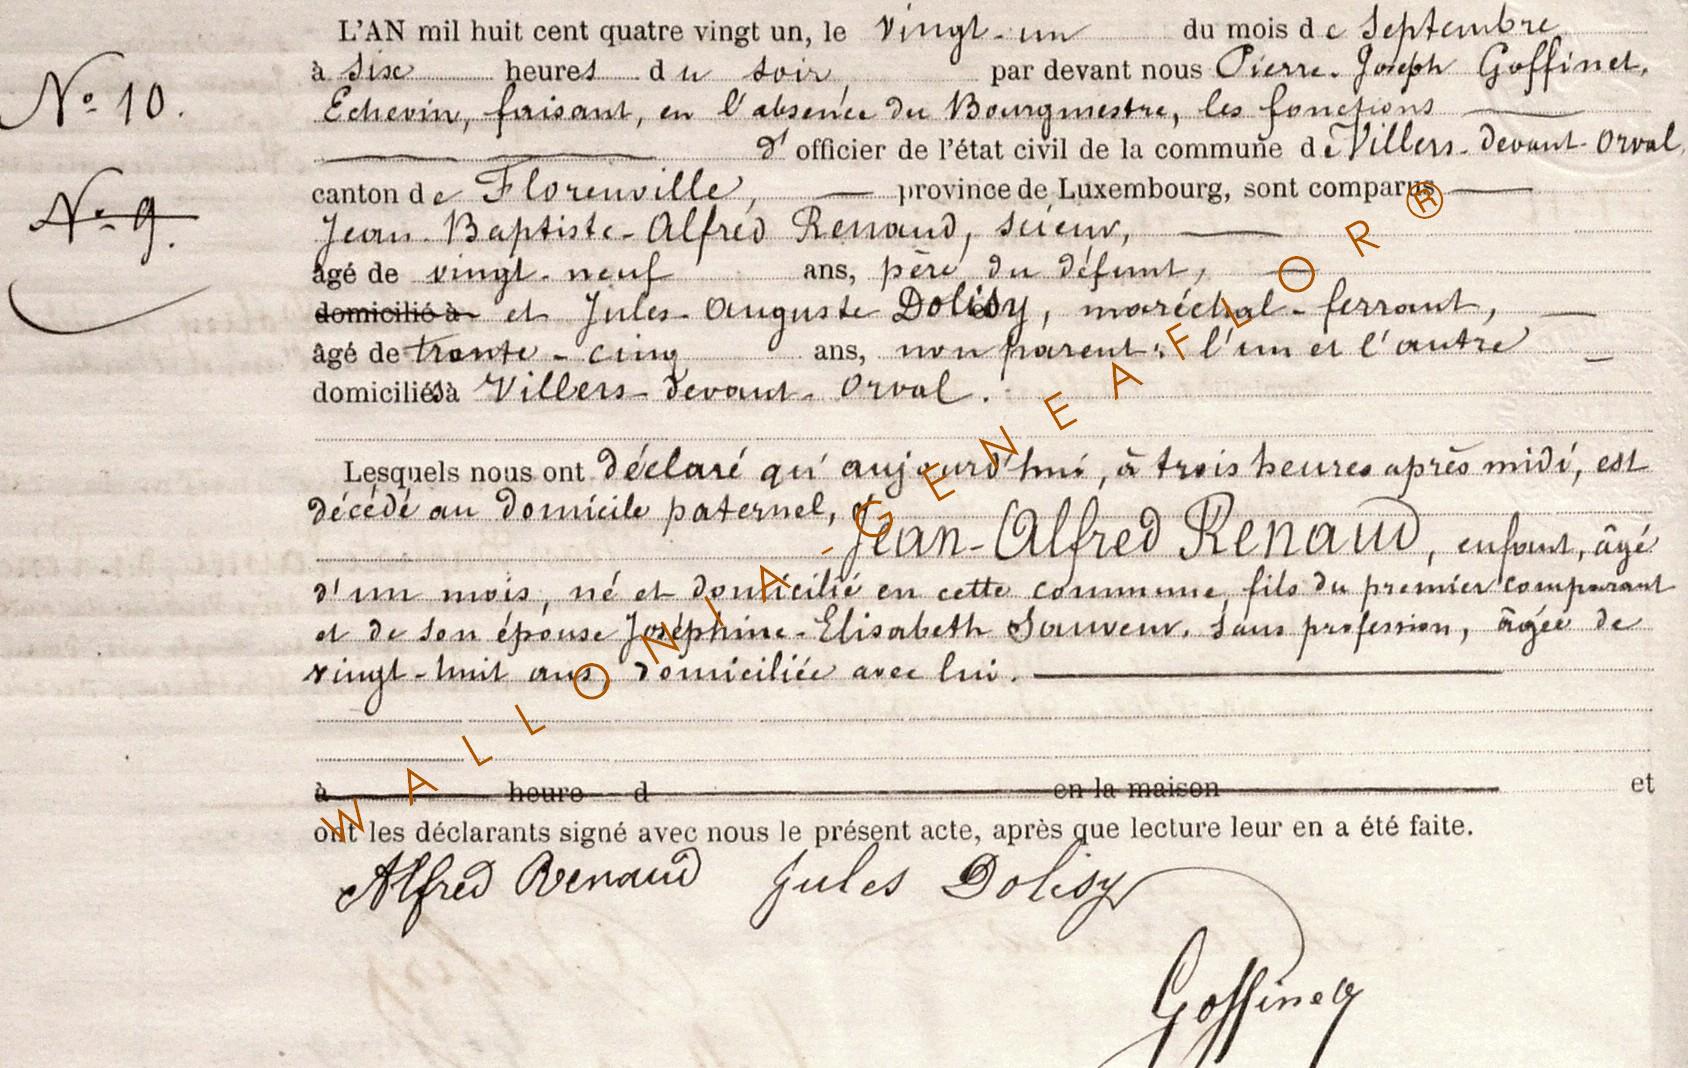 L'AN mil huit cent quatre vingt un, le vingt-un du mois de Septembre
à six heures du soir, par devant nous Pierre-Joseph Goffinet,
Echevin, faisant, en l'absence du Bourgmestre, les fonctions
d'officier de l'état civil de la commune de Villers-devant-Orval,
canton de Florenville, province de Luxembourg, sont comparus
Jean-Baptiste-Alfred Renaud, scieur,
âgé de vingt-neuf ans, père du défunt,
domicilié à et Jules-Auguste Dolisy, maréchal-ferrant,
âgé de trente-cinq ans, non parent; l'un et l'autre
domiciliés à Villers-devant-Orval.
Lesquels nous ont déclaré qu'aujourd'hui, à trois heures après midi, est
décédé au domicile paternel,
Jean-Alfred Renaud, enfant, âgé
d'un mois, né et domicilié en cette commune, fils du premier comparant
et de son épouse Joséphine-Elisabeth Sauveur, sans profession, âgée de
vingt-huit ans, domiciliée avec lui.
à heure d en la maison et
ont les déclarants signé avec nous le présent acte, après que lecture leur en a été faite.
Alfred Renaud Jules Dolisy
Goffinet
No 10.
No 9.
WALLONIA-GENEAFLOR®